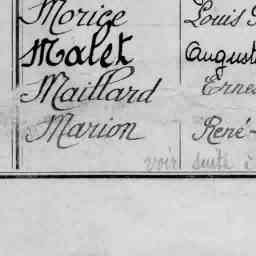 Morice Louis
Malet August
Maillard Ernes
Marion René-
voir suite